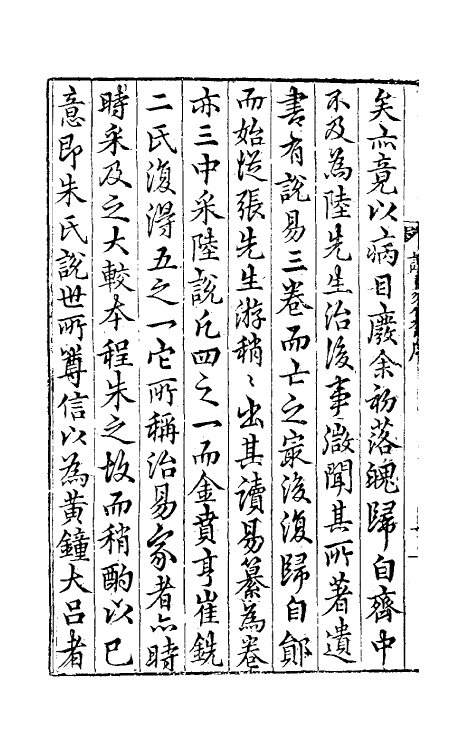 矣亦竟以病目廢余初落魄歸自齊中
不及為陸先生治後事微聞其所著遺
書有說易三卷而亡之寂後復歸自鄖
而始從張先生游稍〻出其讀易纂為卷
亦三中采陸說凡四之一而金賁亨崔銑
二氏復得五之一它所稱治易家者亦時
時采及之大較本程朱之故而稍酌以已
意即朱氏說世所尊信以為黃鐘大呂者